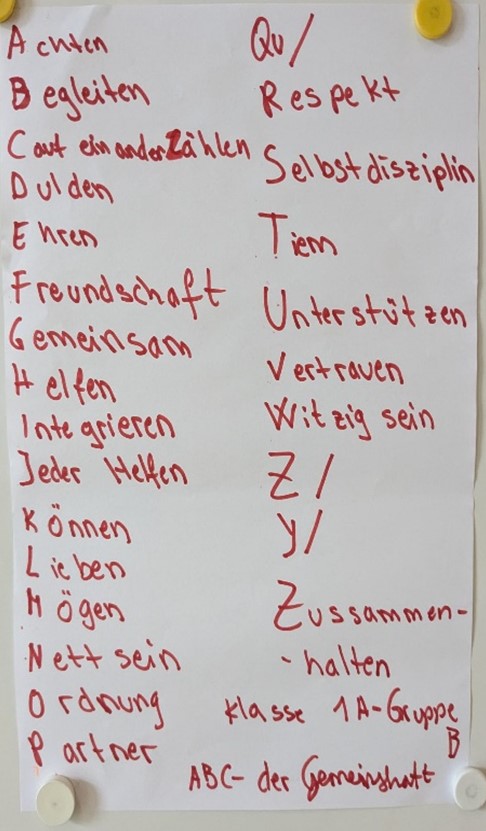 Achten
Begleiten
Caut einander Zählen
Dulden
Ehren
Freundschaft
Gemeinsam
Helfen
Integrieren
Jeder Helfen
Können
Lieben
Mögen
Nett sein
Ordnung
Partner
Qu/
Respekt
Selbstdisziplin
Tiem
Unterstützen
Vertrauen
Witzig sein
Z/
y/
Zussammen-
-halten
Klasse 1A-Gruppe
B
ABC- der Gemeinshaft